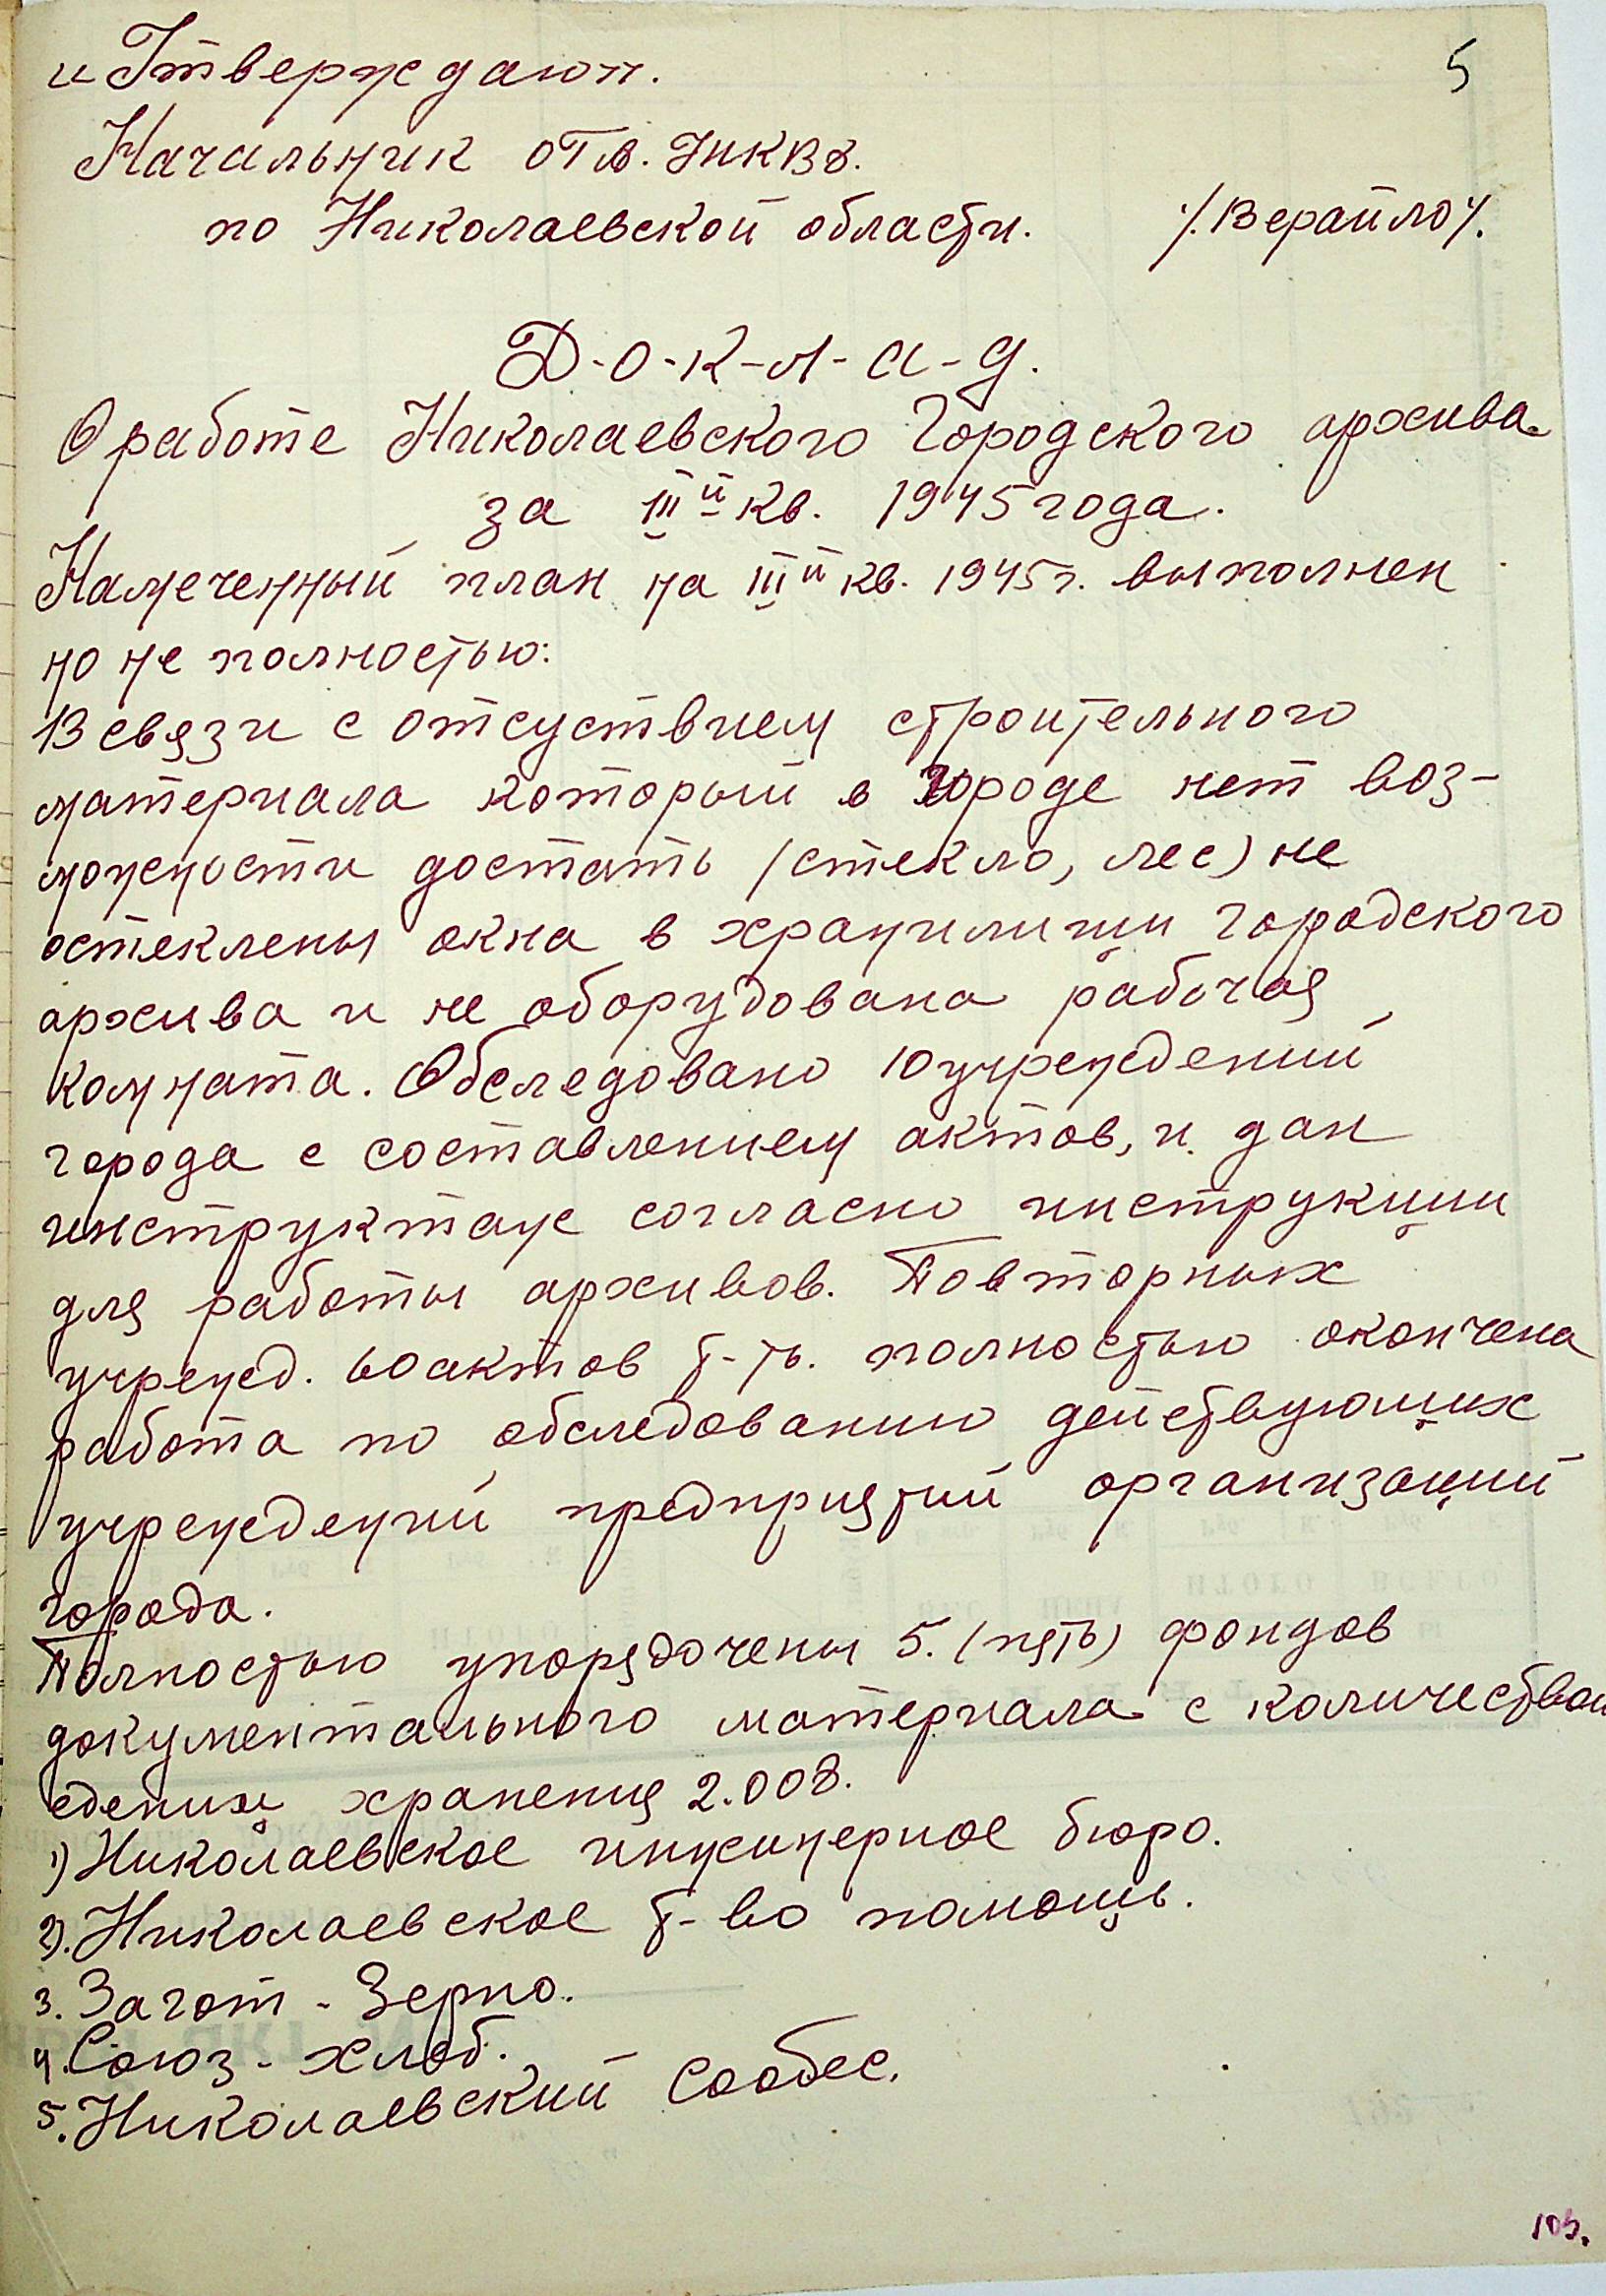 5
„Утверждаю".
Начальник отд. УНКВД.
по Николаевской области. /.Верайло/.
Д-о-к-л-а-д.
О работе Николаевского Городского архива
за III й кв. 1945 года.
Намеченный план на III й кв. 1945 г. выполнен
но не полностью:
В связи с отсуствием строительного
материала который в городе нет воз-
можности достать (стекло, лес) не
остеклены окна в хранилищи городского
архива и не оборудована рабочая
комната. Обследовано 10 учреждений
города с составлением актов, и дан
инструктаж согласно инструкции
для работы архивов. Повторных
учрежд. 60 актов т-ть. полностью окончена
работа по обследованию действующих
учреждений предприятий организаций
города.
Полностью упорядочены 5. (пять) фондов
документального материала с количеством
едениц хранения 2.008.
1) Николаевское инжинерное бюро.
2). Николаевское т-во помощь.
3. Загот - Зерно.
4. Союз - хлеб.
5. Николаевский Собес.
105.